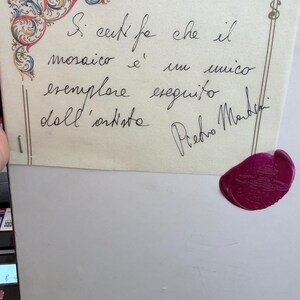 Si certifica che il
mosaico é un unico
esemplare eseguito
dall'artista
Pietro